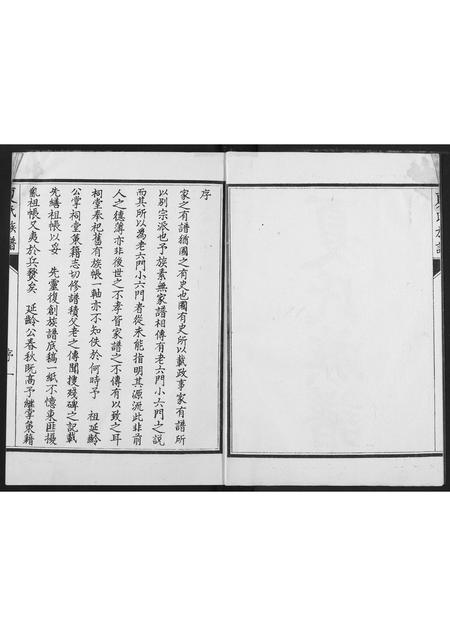 序
家之有譜猶國之有史也國有史所以載政事家有譜所
以别宗派也予族素無家譜相傳有老六門小六門之說
而其所以為老六門小六門者從未能指明其源流此非前
人之德薄亦非後世之不孝皆家譜之不傳有以致之耳
祠堂奉祀舊有族帳一軸亦不知佚於何時予 祖延齡
公掌祠堂策籍志切修譜積父老之傳聞搜殘碑之記載
先繕祖帳以妥 先靈復創族譜底稿一紙不憶東匪擾
亂祖帳又夷於兵燹矣 延齡公春秋既高予繼掌策籍
氏族譜
序 一